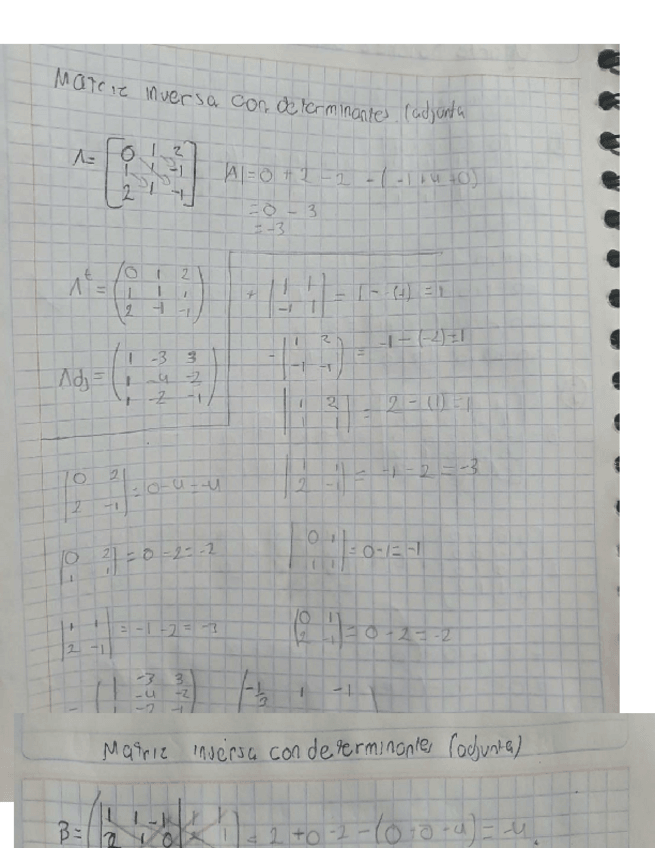 Matriz inversa con determinantes (adjunta
A = [0 1 2
1 1 -1
2 1 -1]
|A| = 0 + 2 - 2 - (-1 + 4 + 0)
= 0 - 3
= -3
A^t = (0 1 2
1 1 1
2 -1 -1)
+ |1 1
-1 1| = 1 - (-1) = 1
Adj = (1 -3 3
1 -4 -2
1 -2 -1)
- |1 2
-1 -1| = -1 - (-2) = 1
|1 2
1 1| = 2 - (1) = 1
|0 2
2 -1| = 0 - 4 = -4
|1 1
2 -1| = -1 - 2 = -3
|0 2
1 1| = 0 - 2 = -2
|0 1
1 1| = 0 - 1 = -1
|1 1
2 -1| = -1 - 2 = -3
|0 1
2 -1| = 0 - 2 = -2
(1 -3 3
-4 -2
(-1/2 1 -1
Matriz inversa con determinantes (adjunta)
B = (1 1 -1
2 1 0
= 2 + 0 - 2 - (0 - 0 - 4) = -4.